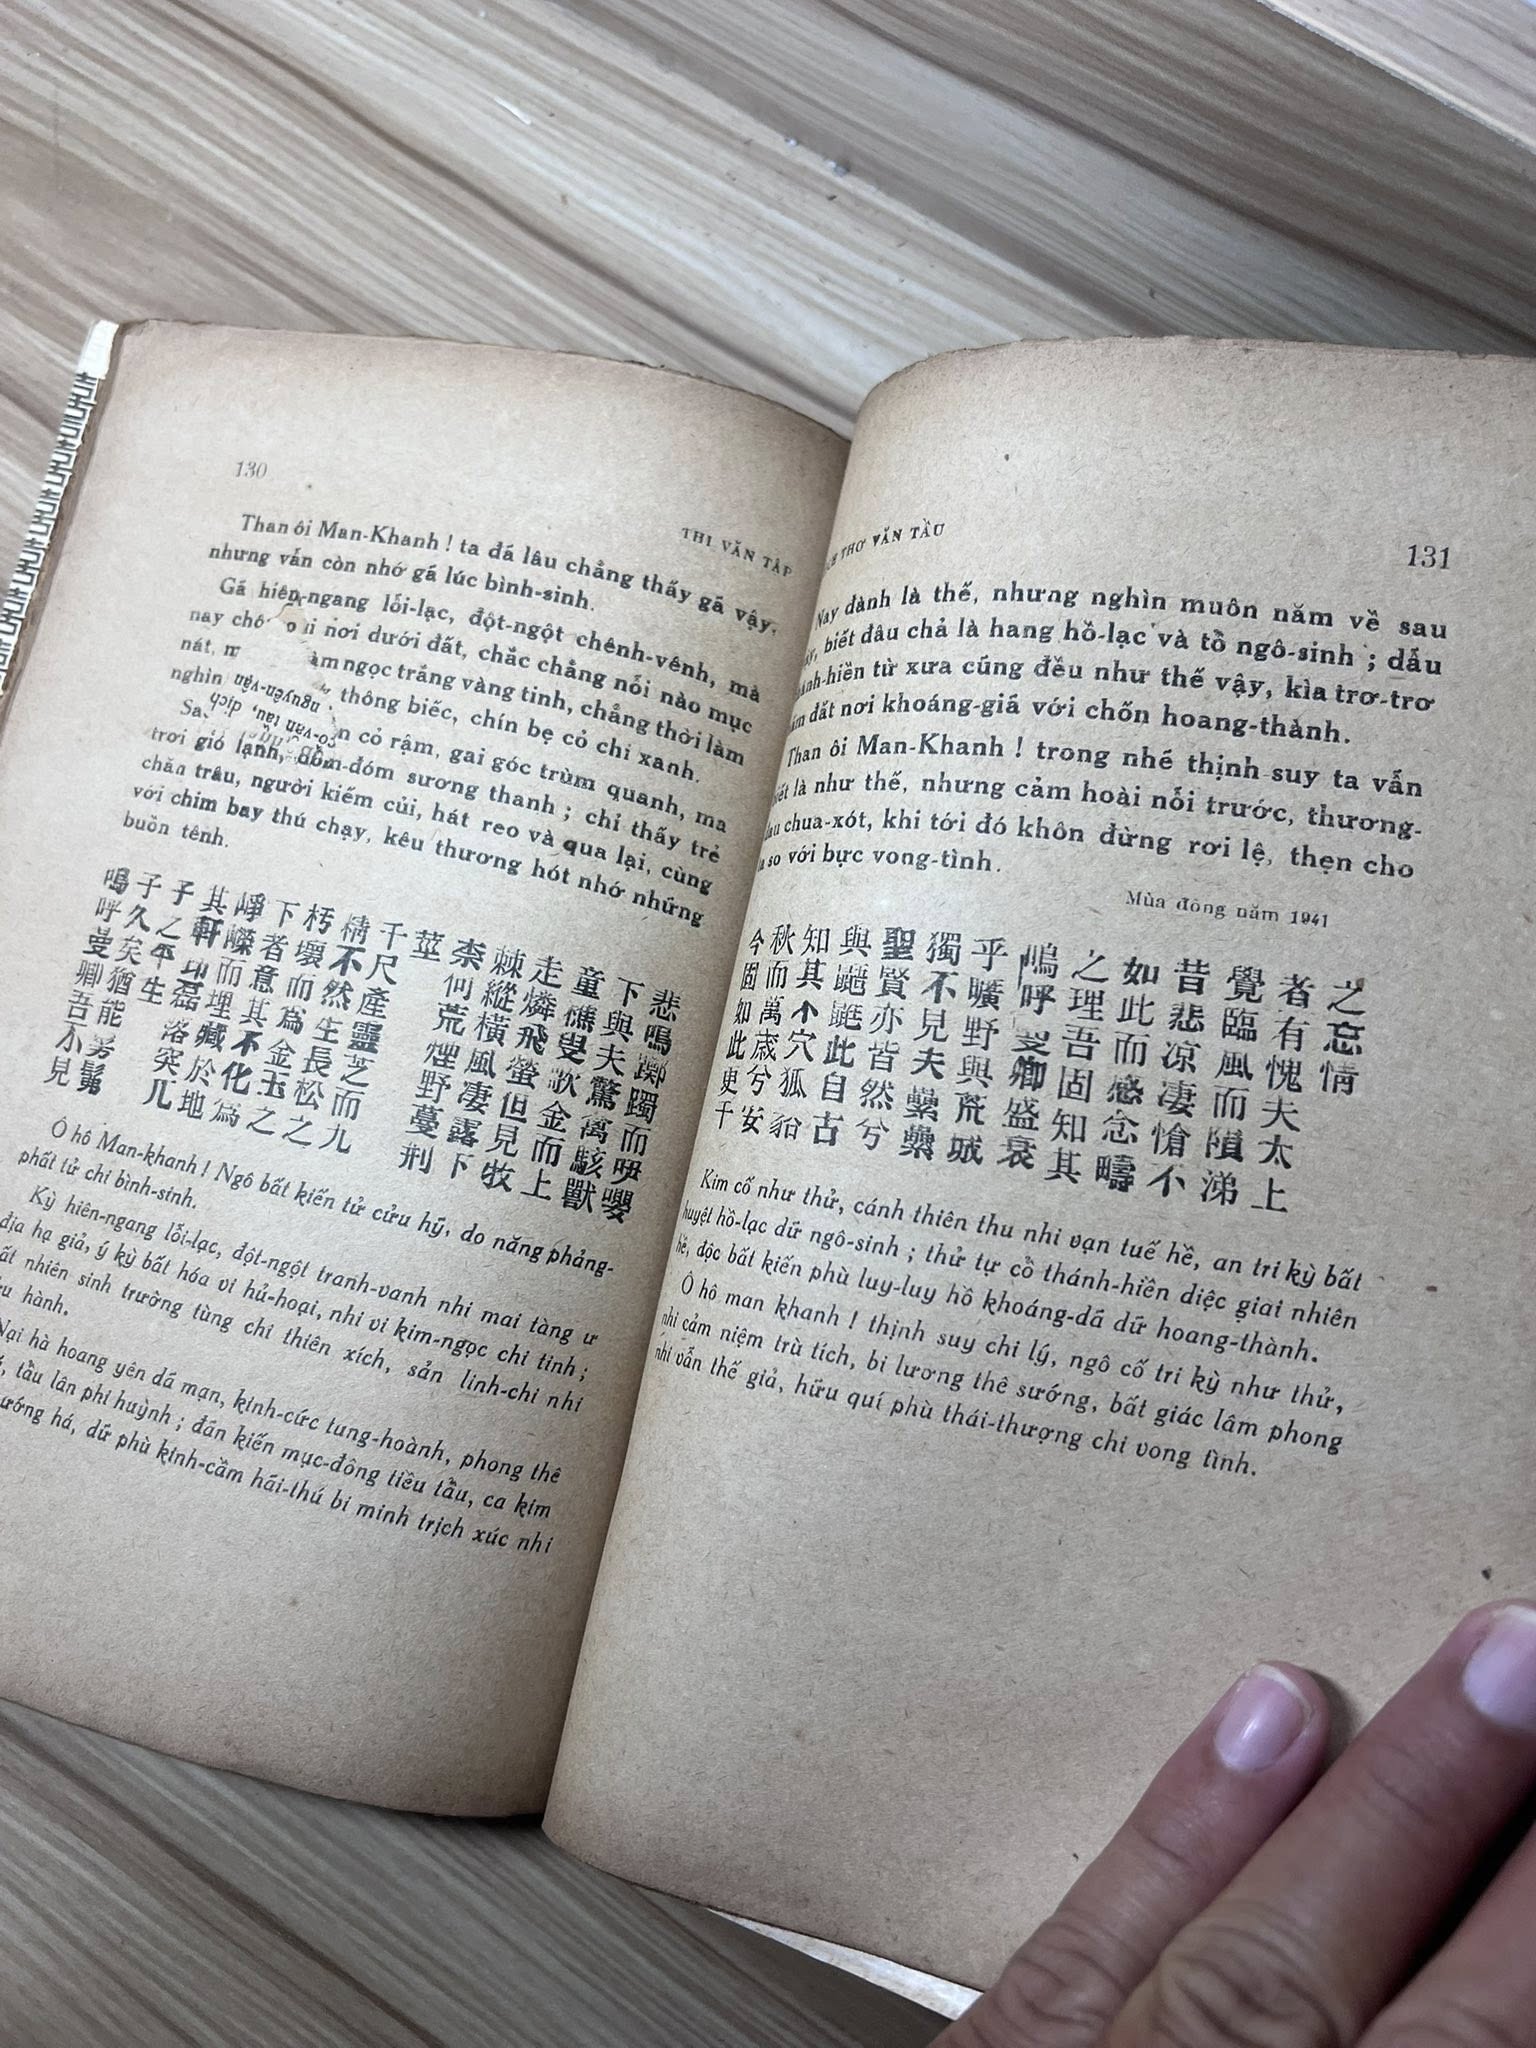 130
THI VĂN TẬP
Than ôi Man-Khanh ! ta đá lâu chẳng thấy gá vậy,
nhưng vẫn còn nhớ gá lúc bình-sinh.
Gá hiên-ngang lỗi-lạc, đột-ngột chênh-vênh, mà
nay chô nơi dưới đất, chắc chẳng nỗi nào mục
nát, làm ngọc trắng vàng tinh, chẳng thời làm
nghìn thông biếc, chín bẹ cỏ chi xanh.
cỏ rậm, gai góc trùm quanh, ma
trơi gió lạnh, đồm-đóm sương thanh ; chỉ thấy trẻ
chăn trâu, người kiếm củi, hát reo và qua lại, cùng
với chim bay thú chạy, kêu thương hót nhớ những
buồn tênh.
nguyên-văn
cổ-văn tầu, dịch
嗚呼曼卿吾不見
子久矣猶能髣髴
子之平生
其軒昂磊落突兀
崢嶸而埋藏於地
下者意其不化為
朽壞而為金玉之
精不然生長松之
千尺產靈芝而九
莖
柰何荒煙野蔓荆
棘縱橫風凄露下
走燐飛螢但見牧
童樵叟歌金而上
下與夫驚禽駭獸
悲鳴躑躅而咿嚶
Ô hô Man-khanh ! Ngô bất kiến tử cửu hỹ, do năng phảng-
phất tử chi bình-sinh.
Kỳ hiên-ngang lỗi-lạc, đột-ngột tranh-vanh nhi mai tàng ư
địa hạ giả, ý kỳ bất hóa vi hủ-hoại, nhi vi kim-ngọc chi tinh ;
nhiên sinh trưởng tùng chi thiên xích, sản linh-chi nhi
hành.
Nại hà hoang yên dã mạn, kinh-cức tung-hoành, phong thê
tầu lân phi huỳnh ; đãn kiến mục-đông tiều tẩu, ca kim
há, dữ phù kinh-cầm hái-thú bi minh trịch xúc nhi
THƠ VĂN TẦU
131
Nay đành là thế, nhưng nghìn muôn năm về sau
biết đâu chả là hang hồ-lạc và tồ ngô-sinh ; dẫu
thánh-hiền từ xưa cúng đều như thế vậy, kìa trơ-trơ
đất nơi khoáng-giá với chốn hoang-thành.
Than ôi Man-Khanh ! trong nhé thịnh suy ta vẫn
biết là như thế, nhưng cảm hoài nỗi trước, thương-
chua-xót, khi tới đó khôn đừng rơi lệ, thẹn cho
so với bực vong-tình.
Mùa đông năm 1941
今固如此更千
秋而萬歲兮安
知其不穴狐貉
與鼯鼪此自古
聖賢亦皆然兮
獨不見夫纍纍
乎曠野與荒城
嗚呼曼卿盛衰
之理吾固知其
如此而感念疇
昔悲凉凄愴不
覺臨風而隕涕
者有愧夫太上
之忘情
Kim cố như thử, cánh thiên thu nhi vạn tuế hề, an tri kỳ bất
huyệt hồ-lạc dữ ngô-sinh ; thử tự cổ thánh-hiền diệc giai nhiên
hề, độc bất kiến phù luy-luy hồ khoáng-dã dữ hoang-thành.
Ô hô man khanh ! thịnh suy chi lý, ngô cố tri kỳ như thử,
nhi cảm niệm trù tích, bi lương thê sướng, bất giác lâm phong
nhi vẫn thế giả, hữu quí phù thái-thượng chi vong tình.